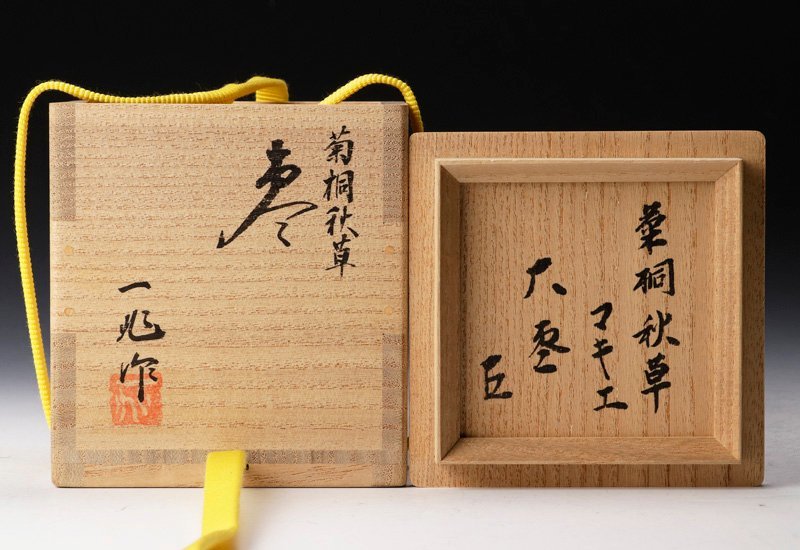 菊桐秋草
棗
一兆作
菊桐秋草
マキエ
大棗